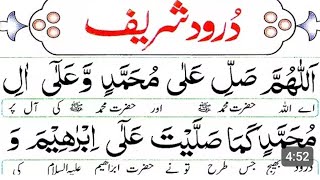 درود شریف
اَللّٰهُمَّ صَلِّ عَلٰى مُحَمَّدٍ وَّعَلٰٓى اٰلِ
اے اللہ حضرت محمد ﷺ اور حضرت محمد ﷺ کی آل پر
مُحَمَّدٍ كَمَا صَلَّيْتَ عَلٰٓى اِبْرٰهِيْمَ وَ
درود بھیج جس طرح تو نے حضرت ابراھیم علیہ السلام کی
4:52